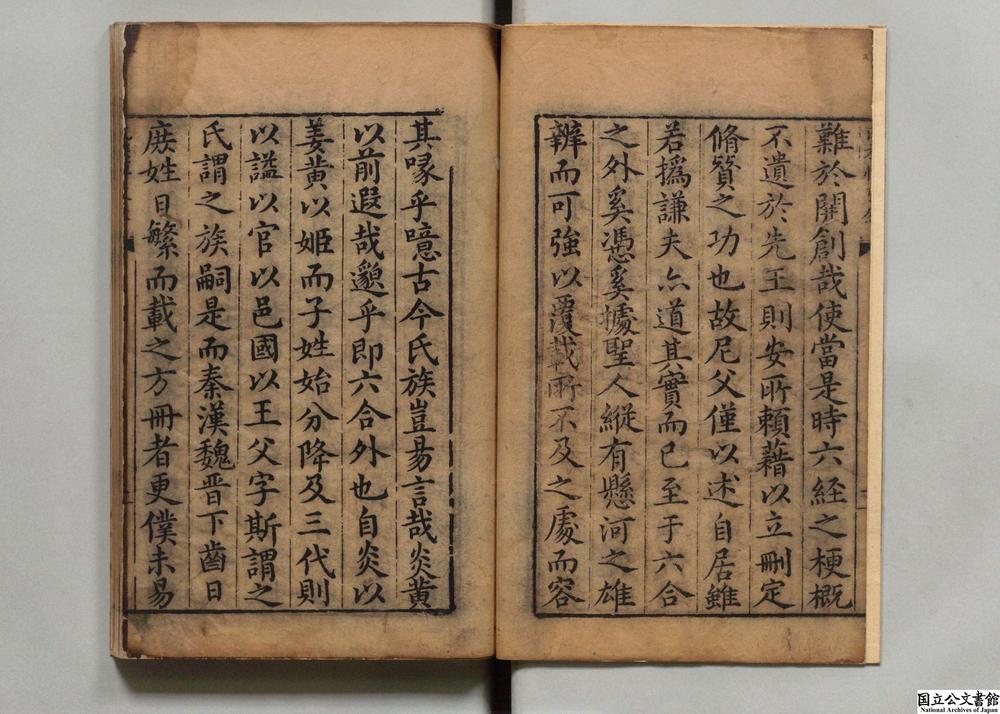 難於開創哉使當是時六経之梗概
不遺於先王則安所頼藉以立刪定
脩賛之功也故尼父僅以述自居雖
若撝謙夫亦道其實而已至于六合
之外奚憑奚據聖人縱有懸河之雄
辨而可強以覆載所不及之處而容
其喙乎噫古今氏族豈易言哉炎黄
以前遐哉邈乎即六合外也自炎以
姜黄以姬而子姓始分降及三代則
以謚以官以邑國以王父字斯謂之
氏謂之族嗣是而秦漢魏晋下齒日
庶姓日繁而載之方冊者更僕未易
国立公文書館
National Archives of Japan